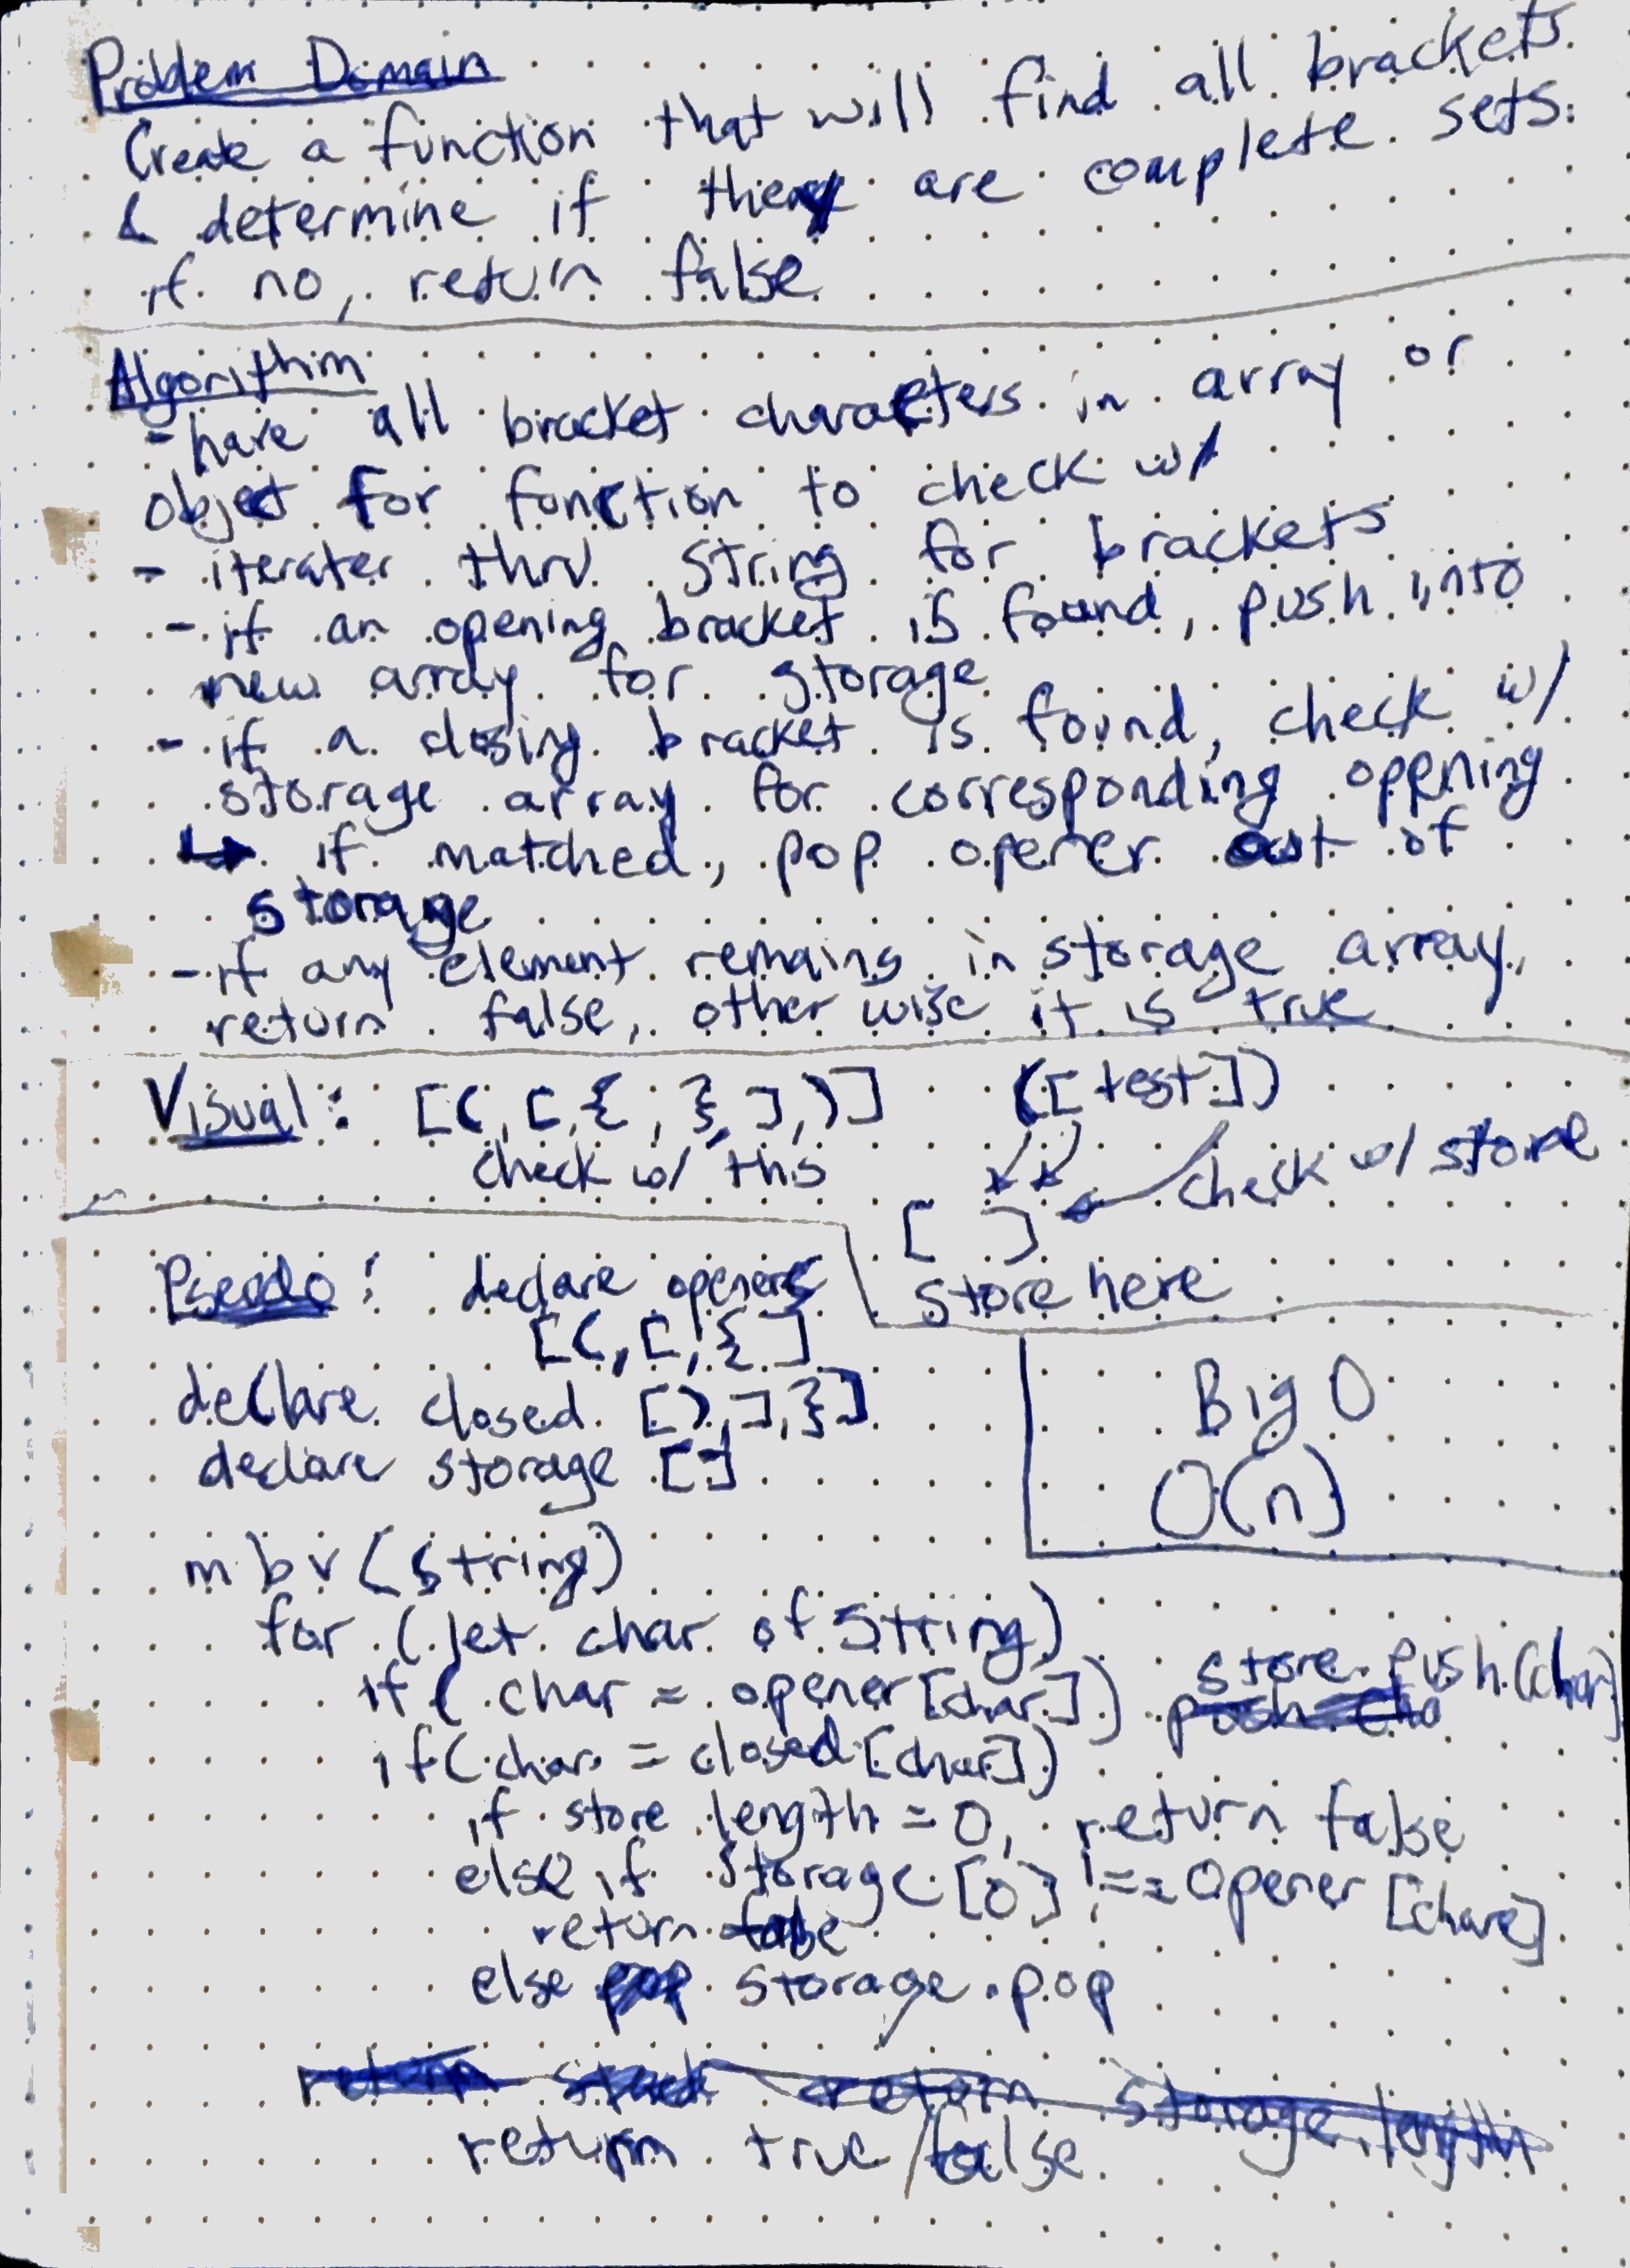 Problem Domain
Create a function that will find all brackets
& determine if they are complete sets.
if no, return false
Algorithm
- have all bracket characters in array or
object for function to check w/
- iterater thru string for brackets
- if an opening bracket is found, push into
new array for storage
- if a closing bracket is found, check w/
storage array for corresponding oppning
↳ if matched, pop opener out of
storage
- if any element remains in storage array,
return false, other wise it is true
Visual: [(, [, {, }, ], )] ([test])
check w/ this
check w/ store
[ ]
store here
Pseudo: declare openers
[(, [, { ]
declare closed [), ], }]
declare storage []
Big O
O(n)
mbv(string)
for (let char of string)
if( char = opener[char]) store.push(char)
if(char = closed[char])
if store length = 0, return false
else if storage[0] !== opener [chare]
return false
else storage.pop
return true/false